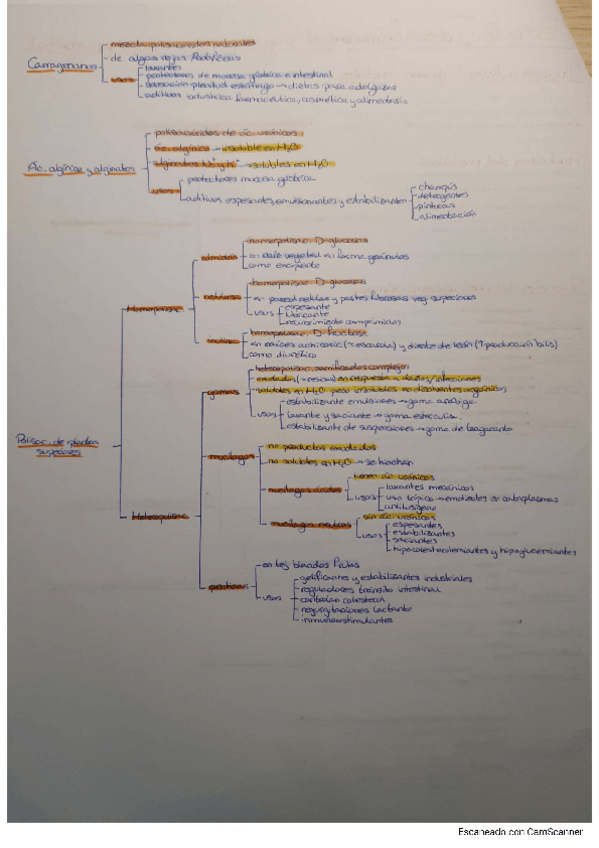 Carragenanos
mezcla polisacáridos naturales
de algas rojas Rodofíceas
usos
laxantes
protectores de mucosa gástrica e intestinal
sensación plenitud estómago → dietas para adelgazar
aditivos industria farmacéutica, cosmética y alimentaria
Ác. algínico y alginatos
polisacáridos de ác. urónicos
ác. algínico → insoluble en H2O
alginatos Na+ y K+ → solubles en H2O
usos
protectores mucosa gástrica
aditivos espesantes, emulsionantes y estabilizantes
champús
detergentes
pinturas
alimentación
Polisac. de plantas superiores
Homopolisac
almidón
homopolisac. D-glucosas
en reino vegetal en forma gránulos
como excipiente
celulosa
homopolisac D-glucosas
en pared celular y partes fibrosas veg superiores
usos
espesante
lubricante
recubrimiento comprimidos
inulina
homopolisac. D-fructosa
en raíces achicoria (≈ escarola) y diente de león (↑ producción bilis)
como diurético
Heteropolisac
gomas
heteropolisac. ramificados complejos
exudados (≈ resinas) en respuesta a daños/infecciones
solubles en H2O pero insolubles en disolventes orgánicos
usos
estabilizante emulsiones → goma arábiga
laxante y saciante → goma esterculia
estabilizante de suspensiones → goma de tragacanto
mucílagos
no productos exudados
no solubles en H2O → se hinchan
mucílagos ácidos
tienen ác. urónicos
usos
laxantes mecánicos
uso tópico → emolientes en cataplasmas
antitusígeno
mucílagos neutros
sin ác. urónicos
usos
espesantes
estabilizantes
saciantes
hipocolesterolemiantes y hipoglucemiantes
pectinas
en tej. blandos frutas
usos
gelificantes y estabilizantes industriales
reguladores tránsito intestinal
controlan colesterol
regurgitaciones lactante
inmunoestimulantes
Escaneado con CamScanner